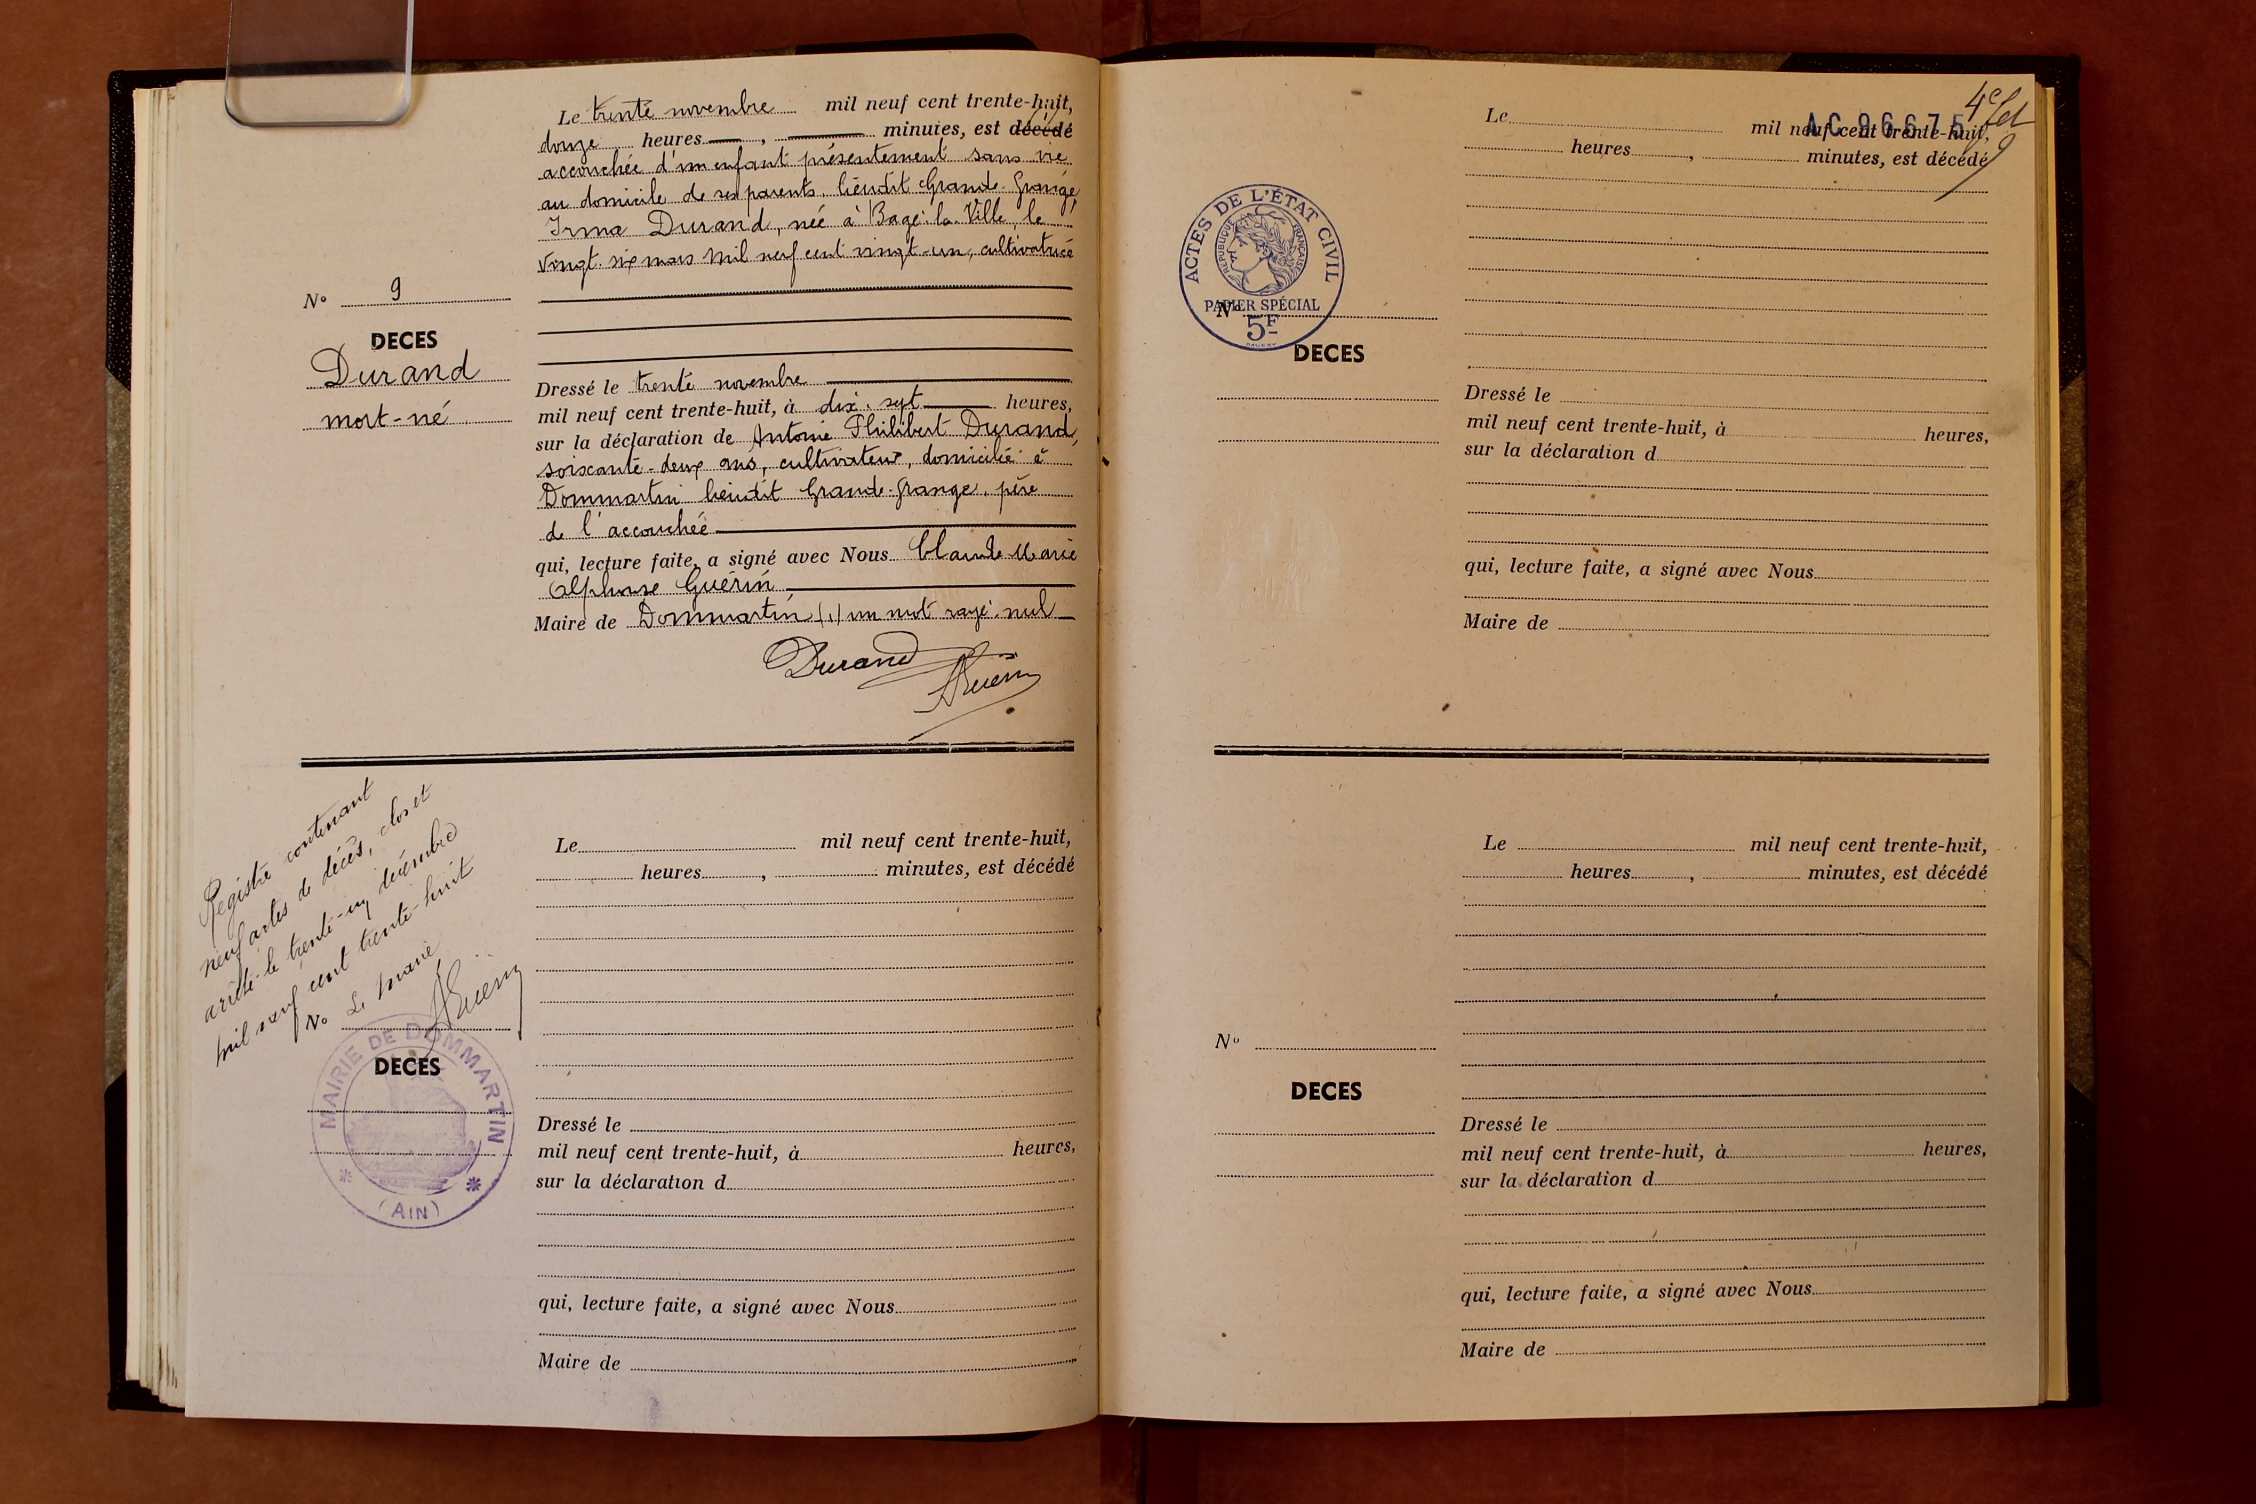 Le trente novembre mil neuf cent trente-huit,
douze heures — , — minutes, est décédé
accouchée d'un enfant présentement sans vie
au domicile de ses parents, lieudit Grande-Grange,
Irma Durand, née à Bagé-la-Ville, le
vingt-six mars mil neuf cent vingt-un, cultivatrice
N° 9
DECES
Durand
mort-né
Dressé le trente novembre
mil neuf cent trente-huit, à dix-sept heures,
sur la déclaration de Antoine Philibert Durand,
soixante-deux ans, cultivateur, domicilié à
Dommartin lieudit Grande-Grange, père
de l'accouchée
qui, lecture faite, a signé avec Nous Claude Marie
Alphonse Guérin
Maire de Dommartin (1) un mot rayé nul
Durand
AGuérin
Registre contenant
neuf actes de décès, clos et
arrêté le trente-un décembre
mil neuf cent trente-huit
Le maire,
AGuérin
N°
DECES
MAIRIE DE DOMMARTIN
* (AIN) *
Le mil neuf cent trente-huit,
heures , minutes, est décédé
Dressé le
mil neuf cent trente-huit, à heures,
sur la déclaration d
qui, lecture faite, a signé avec Nous
Maire de
4e
AC 96675
Le mil neuf cent trente-huit,
heures , minutes, est décédé
ACTES DE L'ÉTAT CIVIL
RÉPUBLIQUE FRANÇAISE
PAPIER SPÉCIAL
5F
N°
DECES
Dressé le
mil neuf cent trente-huit, à heures,
sur la déclaration d
qui, lecture faite, a signé avec Nous
Maire de
Le mil neuf cent trente-huit,
heures , minutes, est décédé
N°
DECES
Dressé le
mil neuf cent trente-huit, à heures,
sur la déclaration d
qui, lecture faite, a signé avec Nous
Maire de